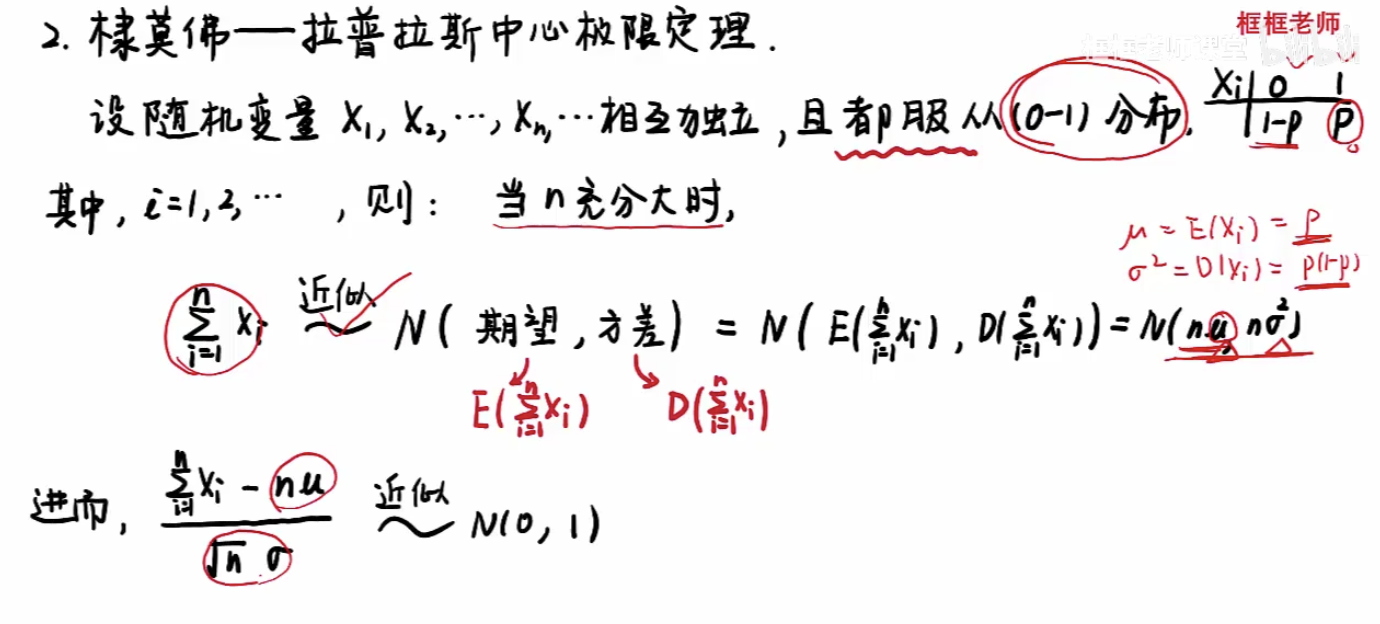 框框老师
框框老师课堂 bilibili
2. 棣莫佛——拉普拉斯中心极限定理.
设随机变量 X₁, X₂, ⋯, Xₙ, ⋯ 相互独立, 且都服从 (0-1) 分布.
Xi 0 1
1-p p
其中, i=1,2,⋯ , 则: 当 n 充分大时,
μ = E(Xi) = p
σ² = D(Xi) = p(1-p)
∑ⁿᵢ₌₁ Xi 近似 ~ N( 期望, 方差) = N( E(∑ⁿᵢ₌₁ Xi), D(∑ⁿᵢ₌₁ Xi)) = N(nμ, nσ²)
E(∑ⁿᵢ₌₁ Xi) D(∑ⁿᵢ₌₁ Xi)
进而, (∑ⁿᵢ₌₁ Xi - nμ) / (√n σ) 近似 ~ N(0, 1)